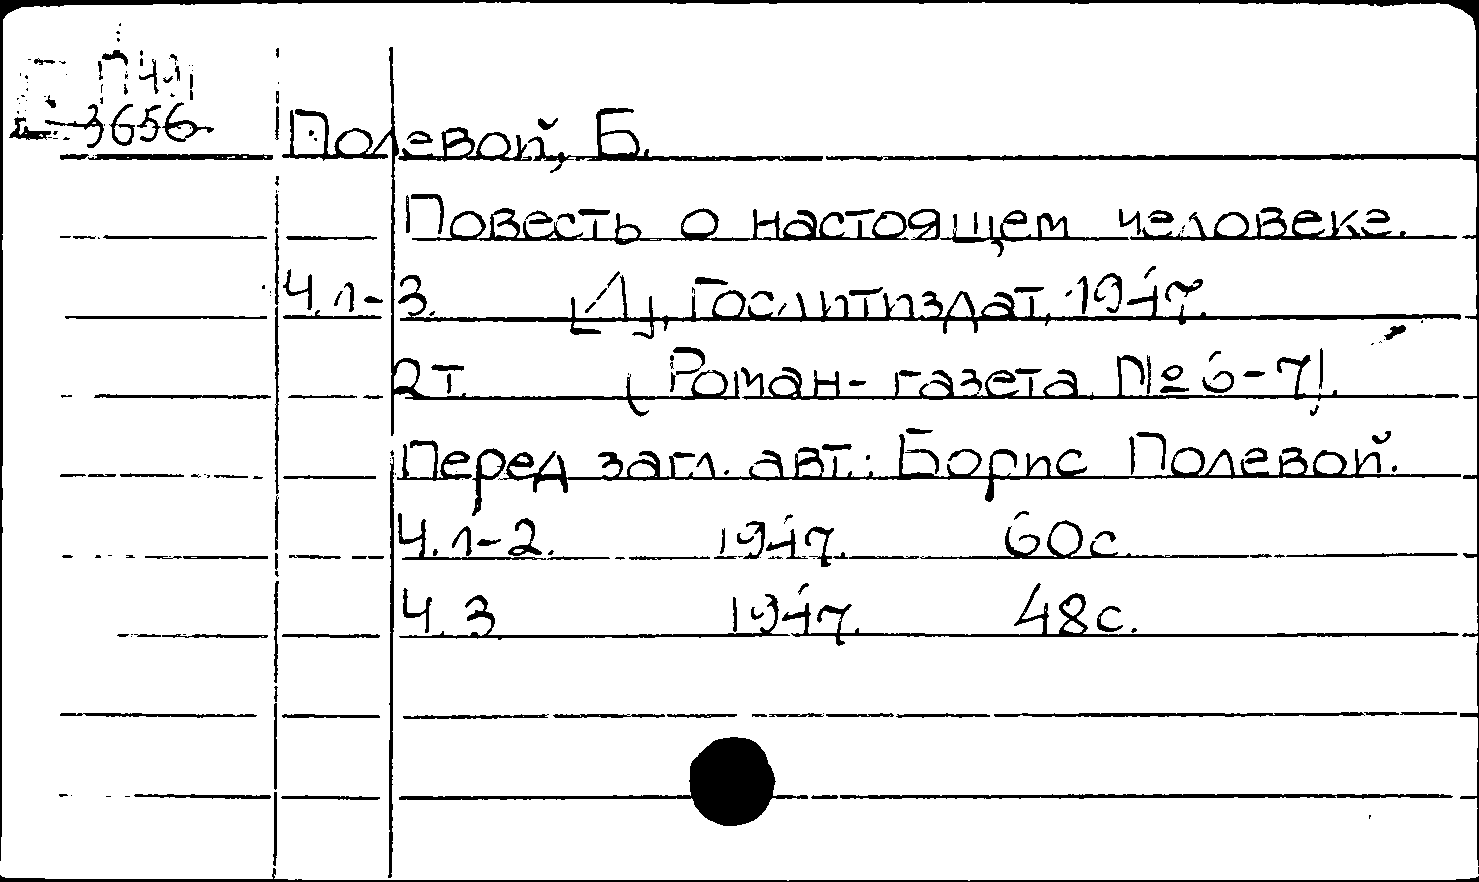 П49
3656
Полевой, Б.
Повесть о настоящем человеке.
Ч. 1-3. [Л], Гослитиздат, 1947.
2т. (Роман-газета № 6-7).
Перед загл. авт.: Борис Полевой.
Ч. 1-2. 1947. 60с.
Ч. 3 1947. 48с.